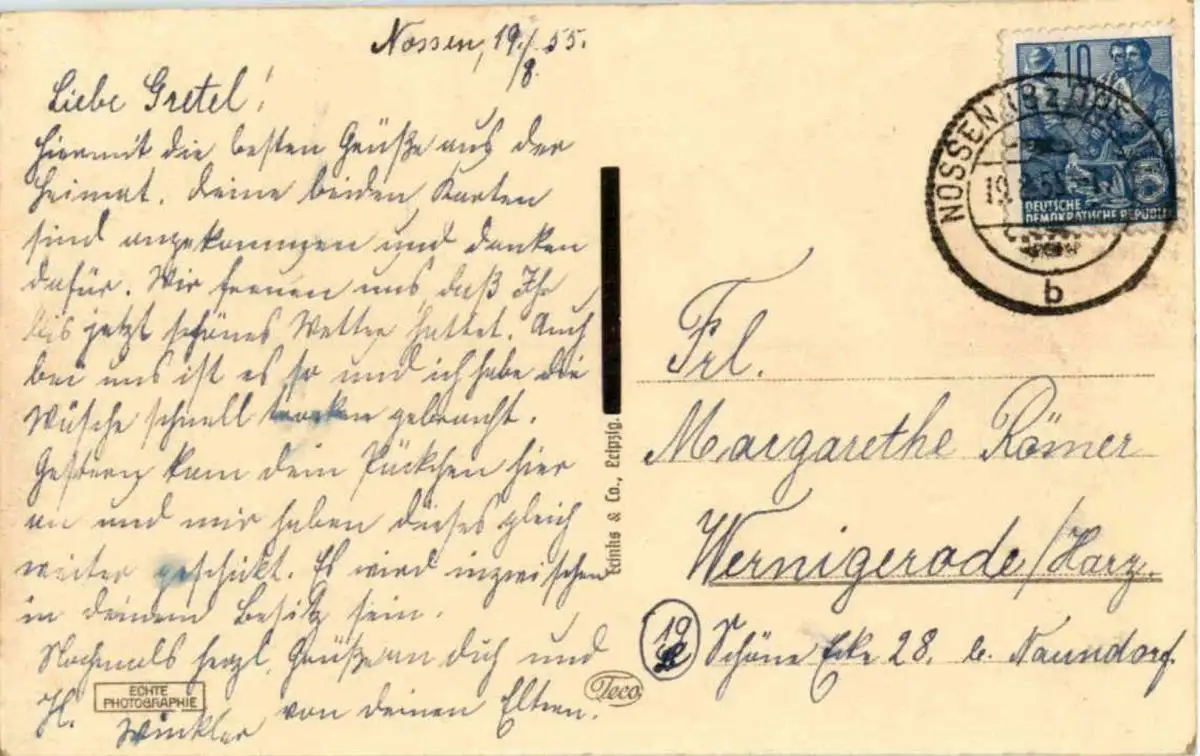 Nossen, 19./8. 55.
Liebe Gretel!
Hiermit die besten Grüße aus der
Heimat. Deine beiden Karten
sind angekommen und danken
dafür. Wir freuen uns, daß Ihr
bis jetzt schönes Wetter hattet. Auch
bei uns ist es so und ich habe die
Wäsche schnell trocken gebracht.
Gestern kam dein Päckchen hier
an und wir haben dieses gleich
weiter geschickt. Es wird inzwischen
in deinem Besitz sein.
Nochmals herzl. Grüße an Dich und
H. Winkler von deinen Eltern.
ECHTE
PHOTOGRAPHIE
& Co., Leipzig.
Teco
10
DEUTSCHE
DEMOKRATISCHE REPUBLIK
NOSSEN
b
Frl.
Margarethe Römer
Wernigerode/Harz.
Schöne Ecke 28. b. Naundorf.